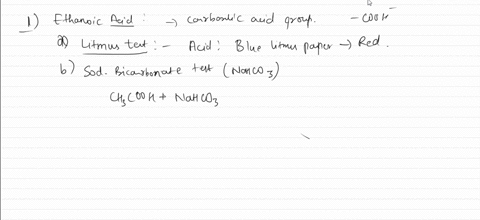 1) Ethanoic Acid : → Carboxylic acid group. - COOH
a) Litmus test : - Acid : Blue litmus paper → Red.
b) Sod. Bicarbonate test (NaHCO3)
CH3COOH + NaHCO3